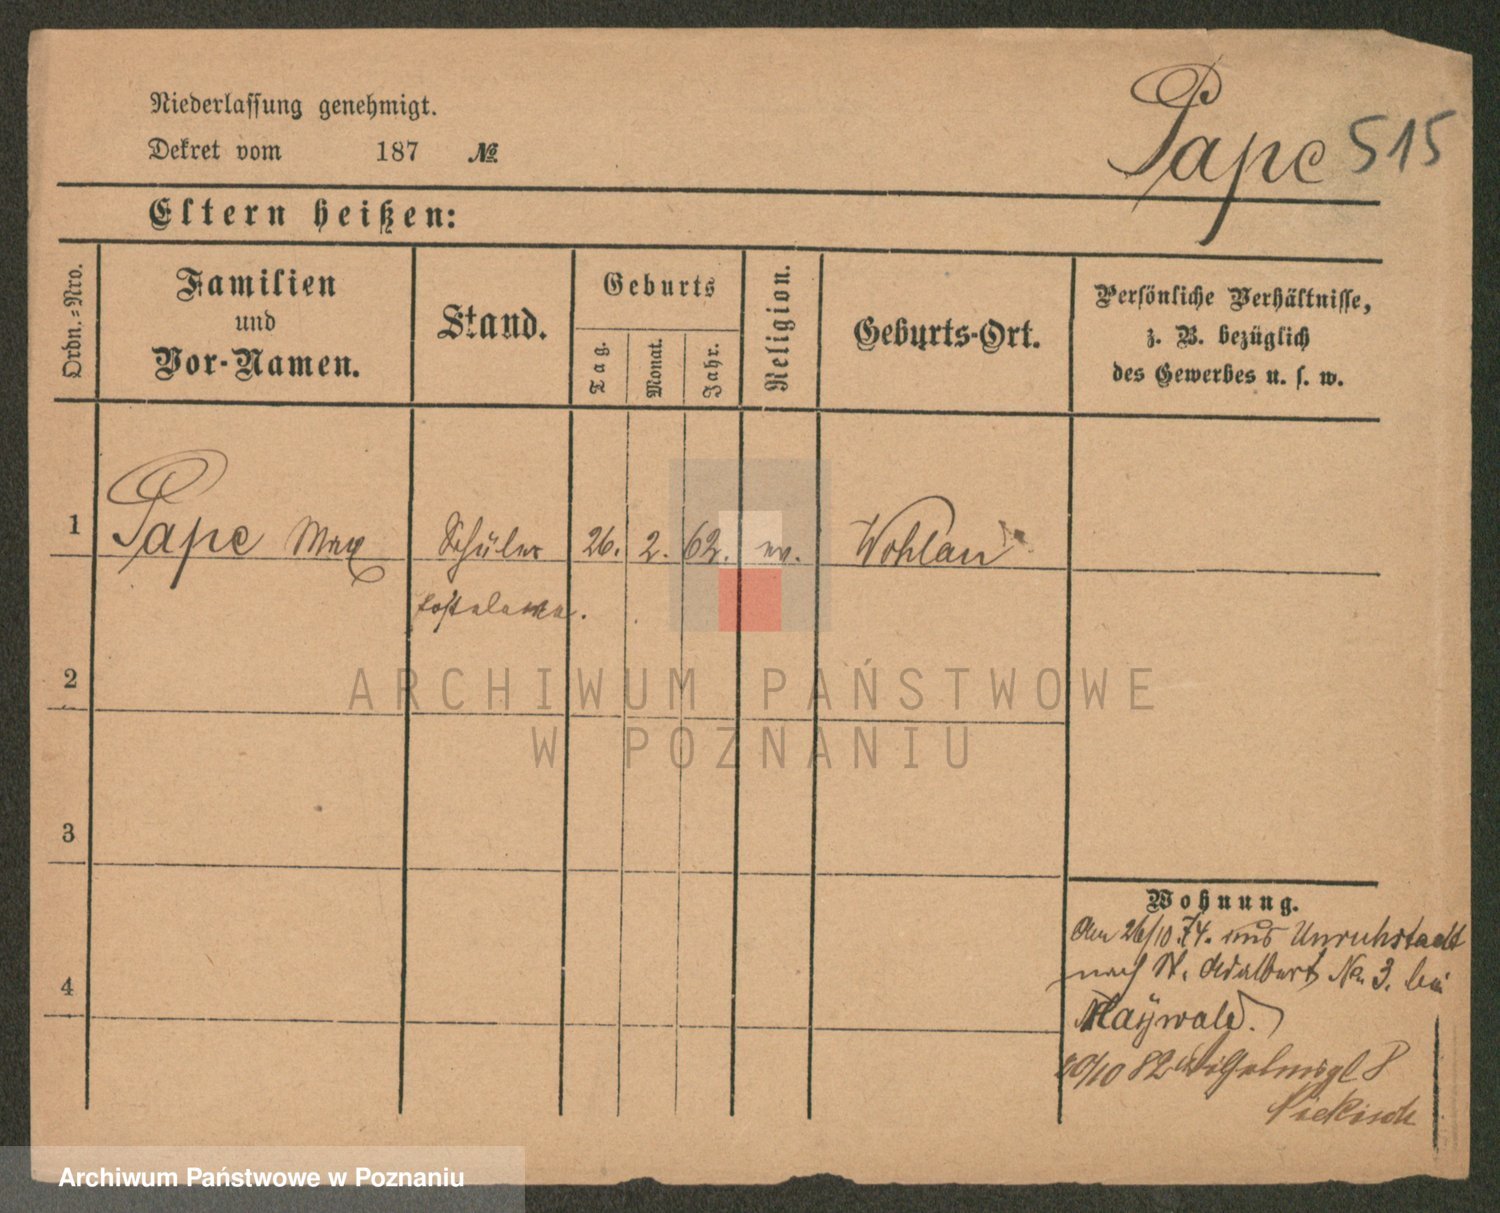 Niederlassung genehmigt.
Dekret vom 187 №
Pape 515
Eltern heißen:
Ordn.-Nro.
Familien
und
Vor-Namen.
Stand.
Geburts
Tag.
Monat.
Jahr.
Religion.
Geburts-Ort.
Persönliche Verhältnisse,
z. B. bezüglich
des Gewerbes u. s. w.
1 Pape Max Schüler 26. 2. 62. ev. Wohlau
2
3
4
Wohnung.
Am 26/10.74. aus Unruhstadt
nach St. Adalbert No. 3. bei
Maywald.
20/10 82 8
ARCHIWUM PAŃSTWOWE
W POZNANIU
Archiwum Państwowe w Poznaniu